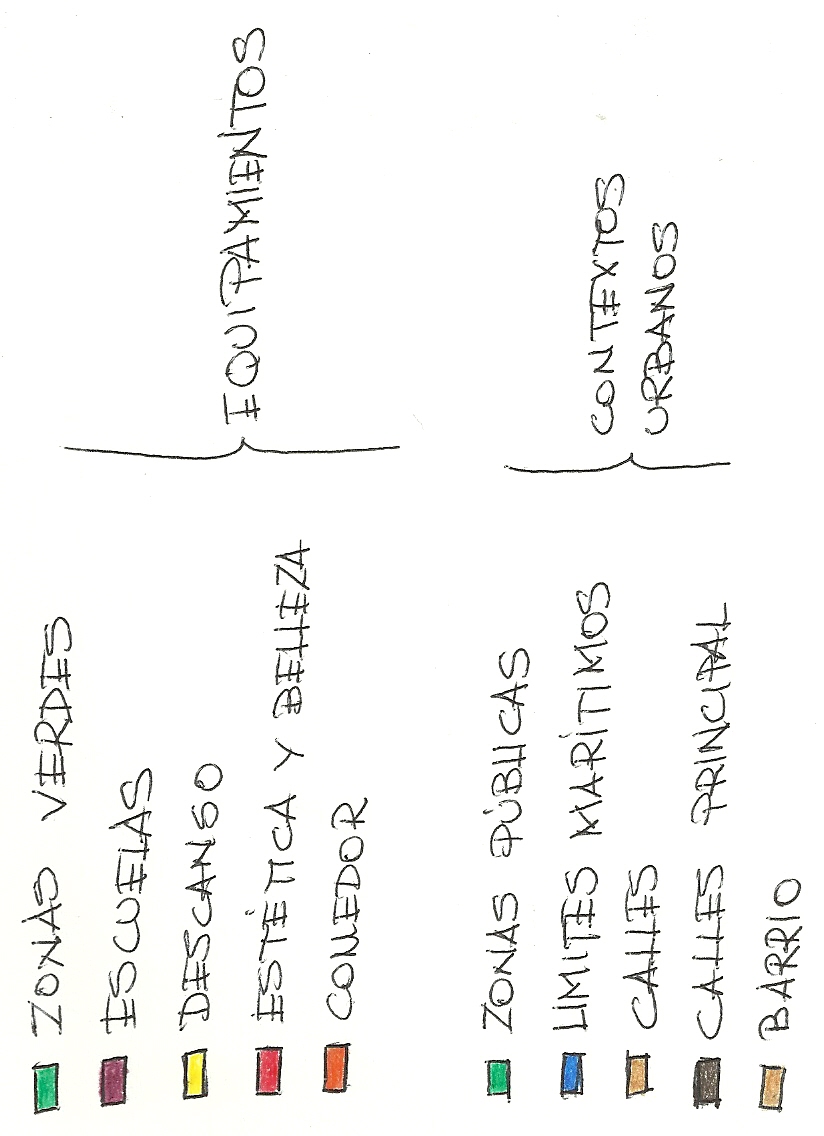 ZONAS VERDES
ESCUELAS
DESCANSO
ESTÉTICA Y BELLEZA
COMEDOR
EQUIPAMIENTOS
ZONAS PÚBLICAS
LIMITES MARÍTIMOS
CALLES
CALLES PRINCIPAL
BARRIO
CONTEXTOS
URBANOS